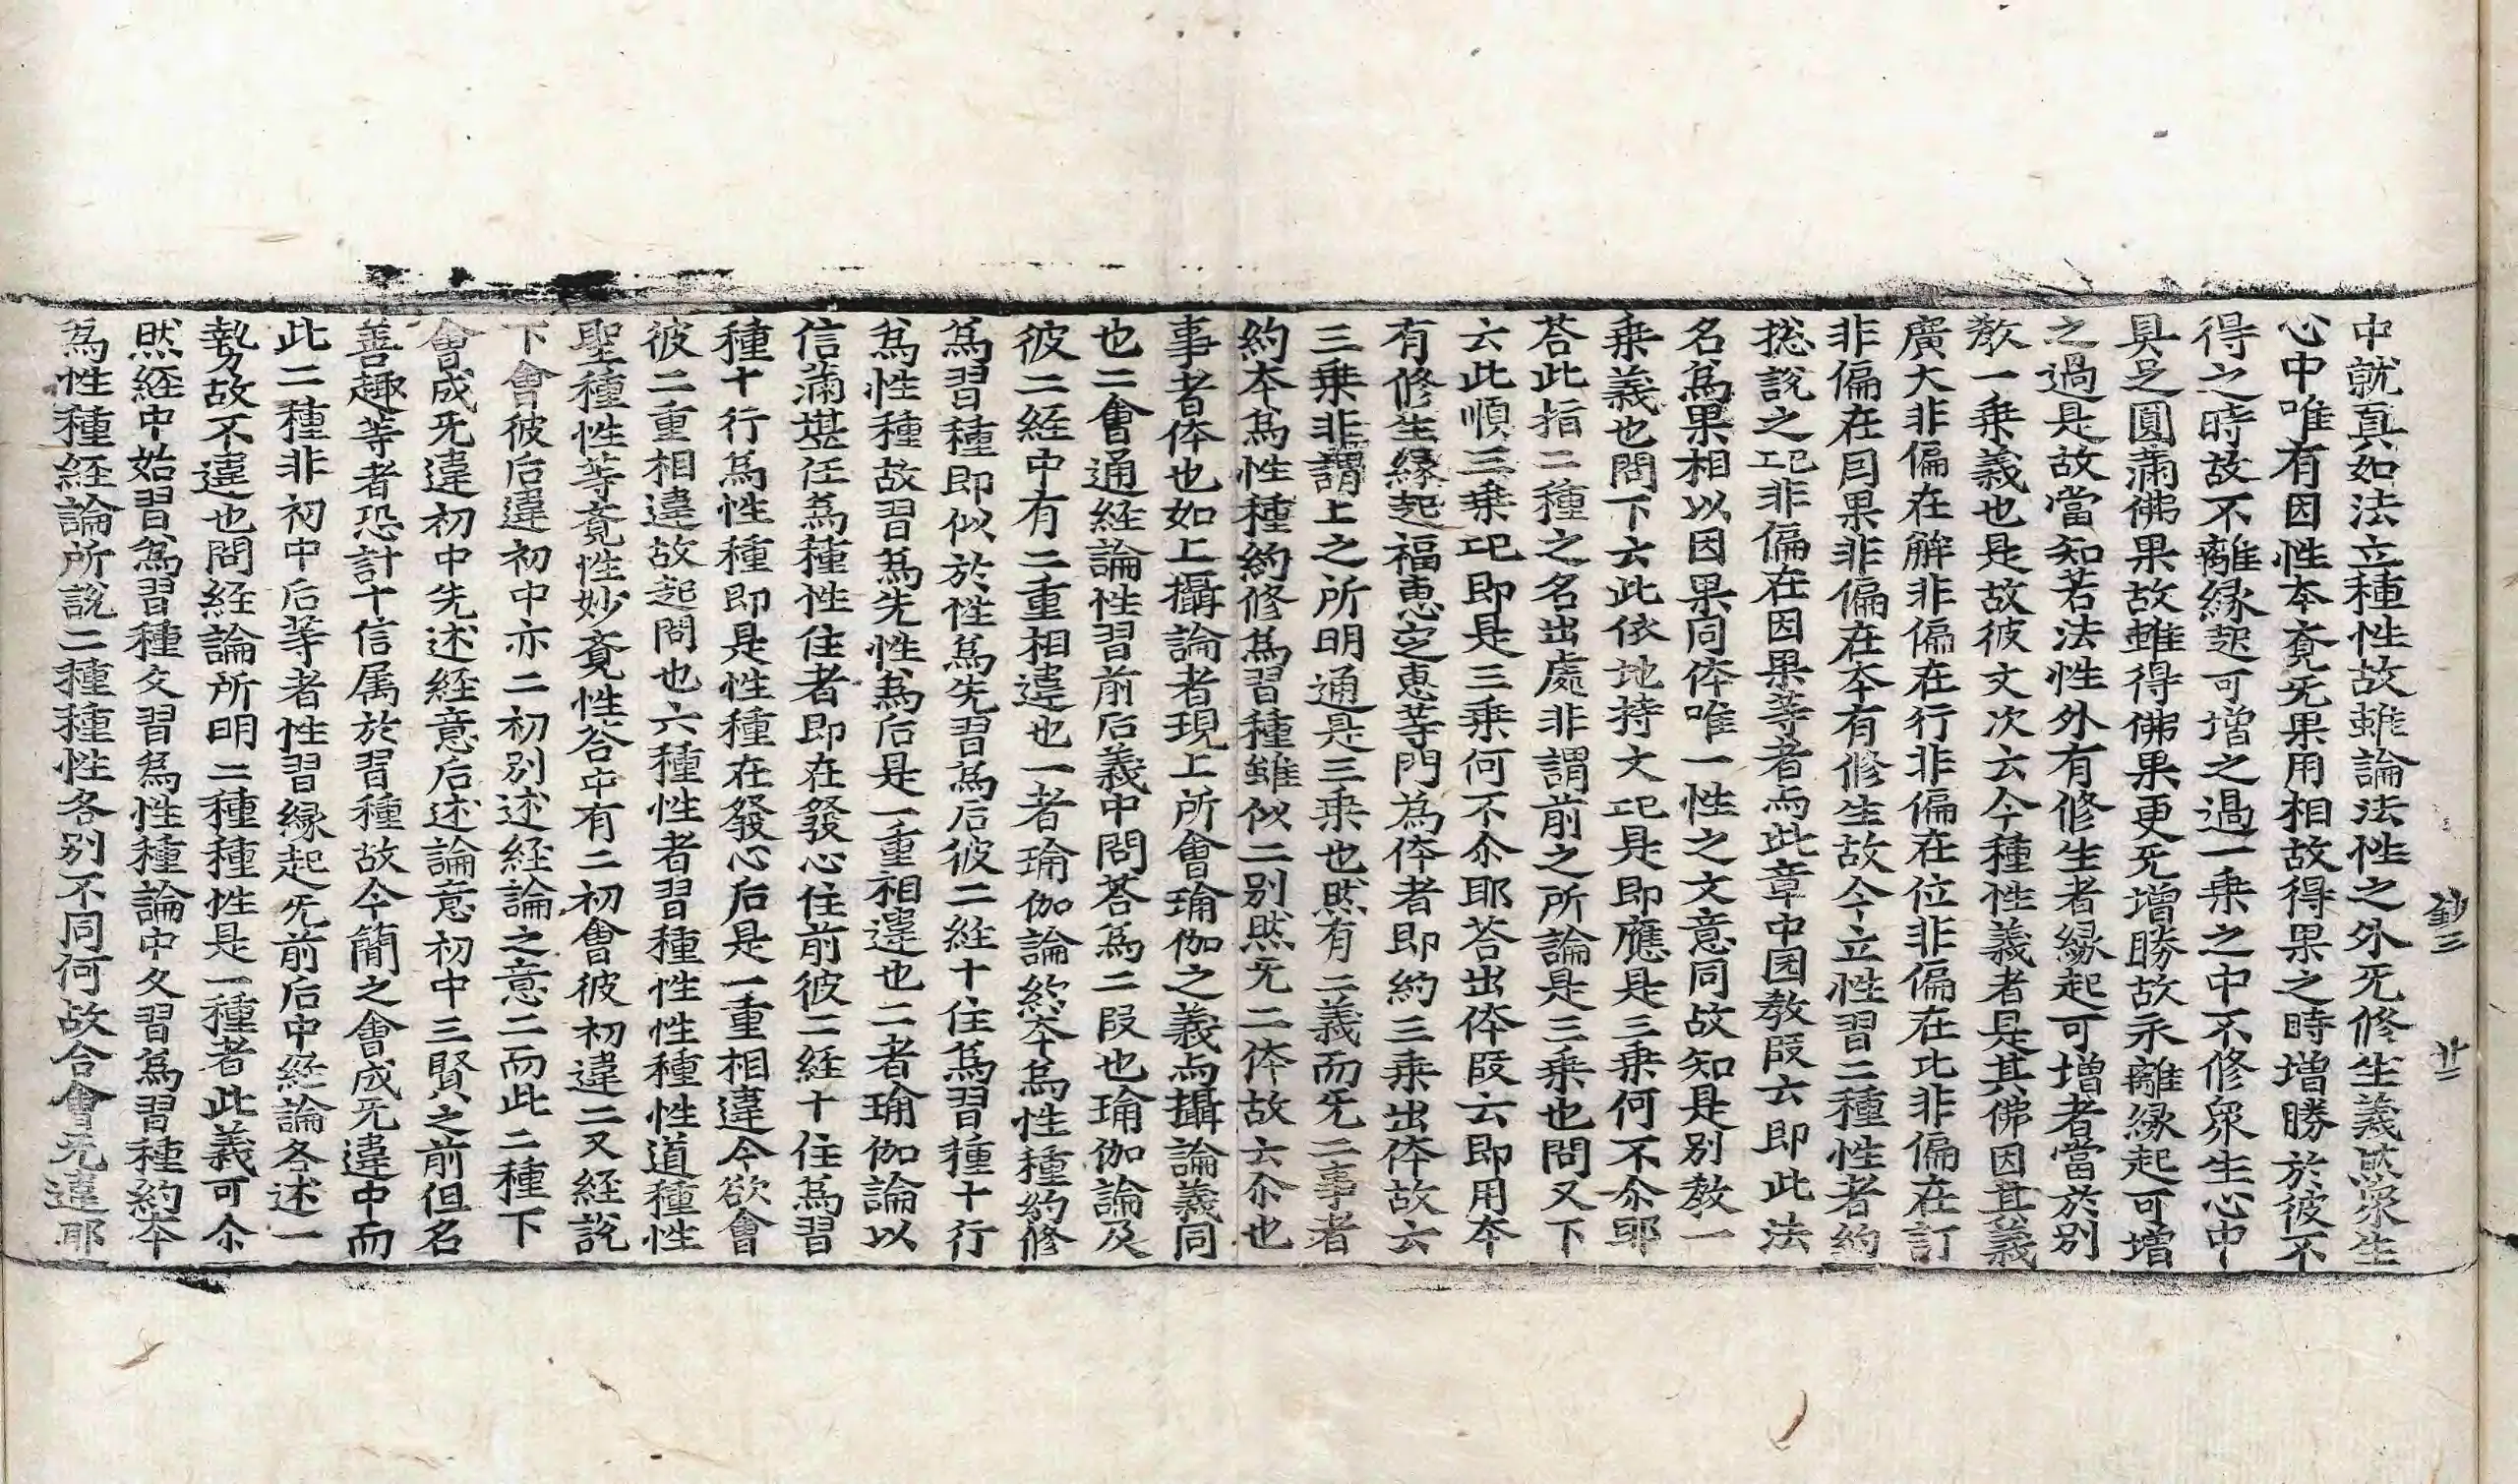 鈔三 廿二
中就真如法立種性故雖論法性之外旡修生義然衆生
心中唯有因性本有旡果用相故得果之時增勝於彼不
得之時故不離縁起可增之過一乘之中不修衆生心中
具足圓滿佛果故雖得佛果更旡增勝故永離縁起可增
之過是故當知若法性外有修生者縁起可增者當於別
教一乘義也是故彼文次云今種性義者是其佛因其義
廣大非偏在解非偏在行非偏在位非偏在比非偏在訂
非偏在囙果非偏在本有修生故今立性習二種性者約
捴說之耳非偏在因果等者而此章中囙教段云即此法
名爲果相以因果同体唯一性之文意同故知是別教一
乘義也問下云此依地持文記是即應是三乘何不尒耶
荅此指二種之名出處非謂前之所論是三乘也問又下
云此順三乘記即是三乘何不尒耶荅出体段云即用本
有修生縁起福恵定恵等門為体者即約三乘出体故云
三乘非謂上之所明通是三乘也然有二義而旡二事者
約本爲性種約修爲習種雖似二別然旡二体故云尒也
事者体也如上攝論者現上所會瑜伽之義而攝論義同
也二會通経論性習前后義中問荅爲二段也瑜伽論及
彼二経中有二重相違也一者瑜伽論終本爲性種約修
爲習種即似於性爲先習爲后彼二経十住爲習種十行
爲性種故習爲先性爲后是一重相違也二者瑜伽論以
信滿堪任爲種性住者即在發心住前彼二経十住爲習
種十行爲性種即是性種在發心后是一重相違今欲會
彼二重相違故起問也六種性者習種性性種性道種性
聖種性等覺性妙覺性荅中有二初會彼初違二又経說
下會彼后違初中亦二初別述経論之意二而此二種下
會成旡違初中先述経意后述論意初中三賢之前但名
善趣等者恐計十信属於習種故今簡之會成旡違中而
此二種非初中后等者性習縁起旡前后中経論各述一
勢故不違也問経論所明二種種性是一種者此義可尒
然経中始習爲習種文習爲性種論中久習爲習種約本
爲性種経論所說二種種性各別不同何故合會旡違耶